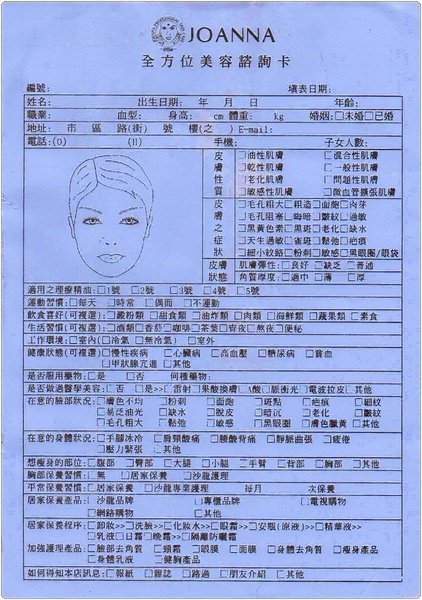 JOANNA
全方位美容諮詢卡
編號: 填表日期:
姓名: 出生日期: 年 月 日 年齡:
職業: 血型: 身高: cm 體重: kg 婚姻:□未婚□已婚
地址: 市 區 路(街) 號 樓(之 ) E-mail:
電話:(O) (H) 手機: 子女人數:
皮膚性質 □油性肌膚 □混合性肌膚
□乾性肌膚 □一般性肌膚
□老化肌膚 □問題性肌膚
□敏感性肌膚 □微血管擴張肌膚
皮膚之症狀 □毛孔粗大□粗造□面皰□肉芽
□毛孔阻塞□暗暗□皺紋□過敏
□黑黃色素□黑斑□老化□缺水
□天生過敏□雀斑□鬆弛□疤痕
□細小紋路□粉刺□敏感□黑眼圈/眼袋
皮膚狀態 肌膚彈性:□良好 □缺乏 □普通
角質厚度:□適中 □薄 □厚
適用之理療精油:□1號 □2號 □3號 □4號 □5號
運動習慣:□每天 □時常 □偶而 □不運動
飲食喜好(可複選):□澱粉類 □甜食類 □油炸類 □肉類 □海鮮類 □蔬果類 □素食
生活習慣(可複選):□酒類□香菸□咖啡□茶葉□宵夜□熬夜□便秘
工作環境:□室內(□冷氣 □無冷氣) □室外
健康狀態(可複選)□慢性疾病 □心臟病 □高血壓 □糖尿病 □貧血
□甲狀腺亢進 □其他
是否服用藥物:□是 □否 何種藥物:
是否做過醫學美容:□否 □是>>□雷射□果酸換膚□A酸□脈衝光□電波拉皮□其他
在意的臉部狀況:□膚色不均 □粉刺 □面皰 □斑點 □疤痕 □細紋
□易泛油光 □缺水 □脫皮 □暗沉 □老化 □皺紋
□毛孔粗大 □鬆弛 □敏感 □黑眼圈 □膚色臘黃 □其他
在意的身體狀況:□手腳冰冷 □肩頸酸痛 □腰酸背痛 □靜脈曲張 □疲倦
□壓力緊張 □其他
想瘦身的部位:□腹部 □臀部 □大腿 □小腿 □手臂 □背部 □胸部 □其他
胸部保養習慣:□無 □居家保養 □沙龍護理
平常保養習慣:□居家保養 □沙龍專業護理 每月 次保養
居家保養產品:□沙龍品牌 □專櫃品牌 □電視購物
□網路購物 □其他
居家保養程序:□卸妝>>□洗臉>>□化妝水>>□眼霜>>□安瓶(原液)>>□精華液>>
□乳液□日霜□晚霜>>□隔離防曬霜
加強護理產品:□臉部去角質 □頸霜 □眼膜 □面膜 □身體去角質 □瘦身產品
□身體乳液 □健胸產品
如何得知本店訊息:□報紙 □雜誌 □路過 □朋友介紹 □其他